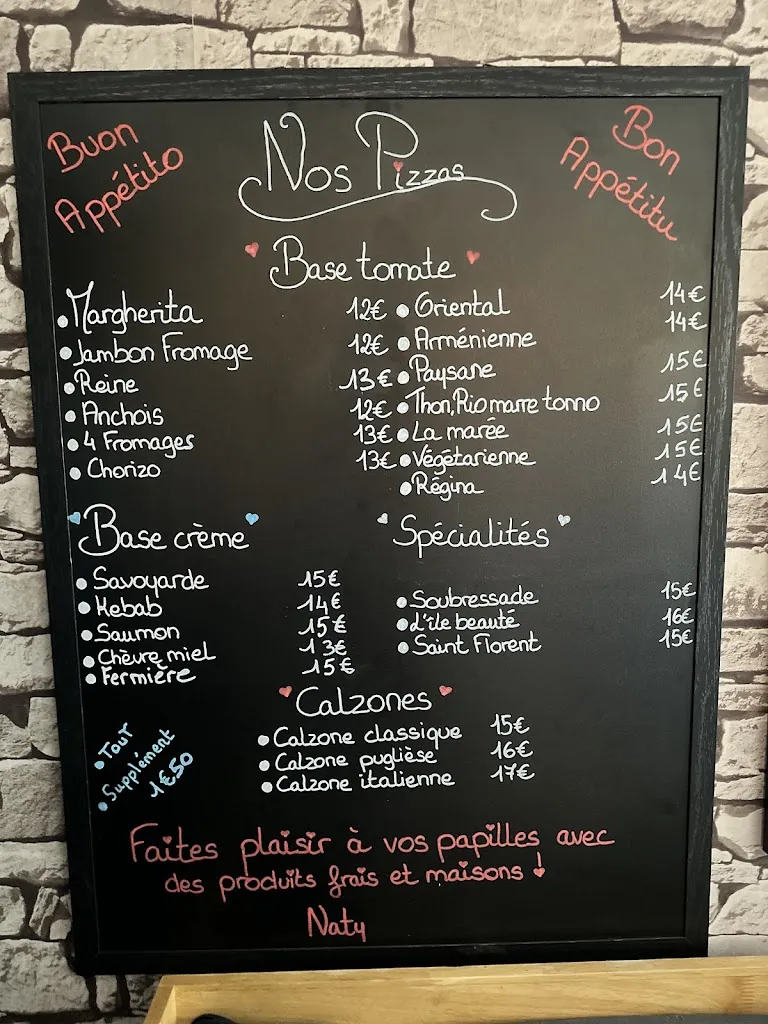 Buon
Appétito
Nos Pizzas
Bon
Appétitu
Base tomate
Margherita 12€
Jambon Fromage 12€
Reine 13€
Anchois 12€
4 Fromages 13€
Chorizo 13€
Oriental 14€
Arménienne 14€
Paysane 15€
Thon, Rio marre tonno 15€
La marée 15€
Végétarienne 15€
Régina 14€
Base crème
Savoyarde 15€
Kebab 14€
Saumon 15€
Chèvre miel 13€
Fermière 15€
Spécialités
Soubressade 15€
L'île beauté 16€
Saint Florent 15€
Calzones
Calzone classique 15€
Calzone puglièse 16€
Calzone italienne 17€
Tout
Supplément
1€50
Faites plaisir à vos papilles avec
des produits frais et maisons !
Naty